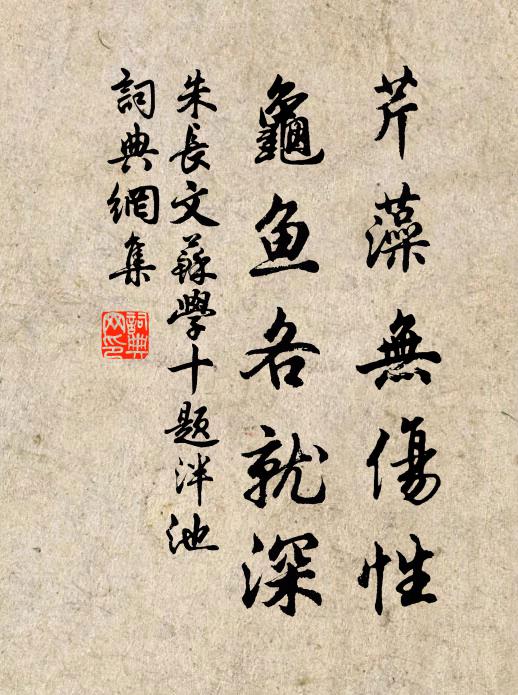 芹藻無傷性
龜鱼各就深
朱長文蘇學十題泮池
詞典網集
詞典網印